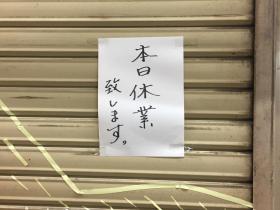 本日休業
致します。